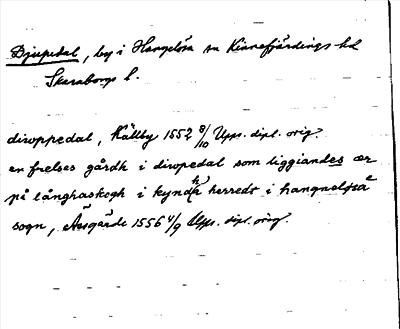 Djupedal, by i Hangelösa sn Kinnefjärdings hd
Skaraborgs l.
diwppedal, Källby 1552 8/10 Upps. dipl. orig.
en frelses gårdh i diwpedal som liggiandes ær
på långhaskogh i kynda herredt i hangnelssa
sogn, Aasgårde 1556 4/9 Upps. dipl. orig.